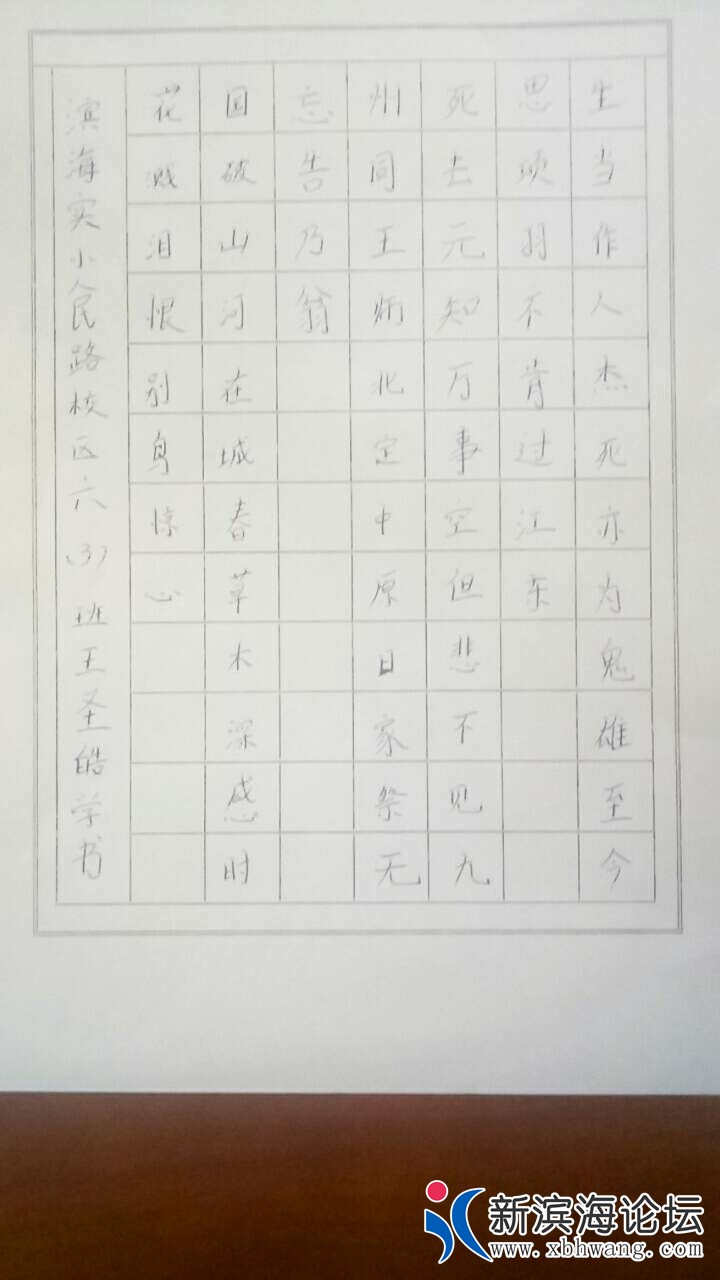 生当作人杰死亦为鬼雄至今
思项羽不肯过江东
死去元知万事空但悲不见九
州同王师北定中原日家祭无
忘告乃翁
国破山河在城春草木深感时
花溅泪恨别鸟惊心
滨海实小人民路校区六（3）班王圣皓学书
新滨海论坛
www.xbhwang.com